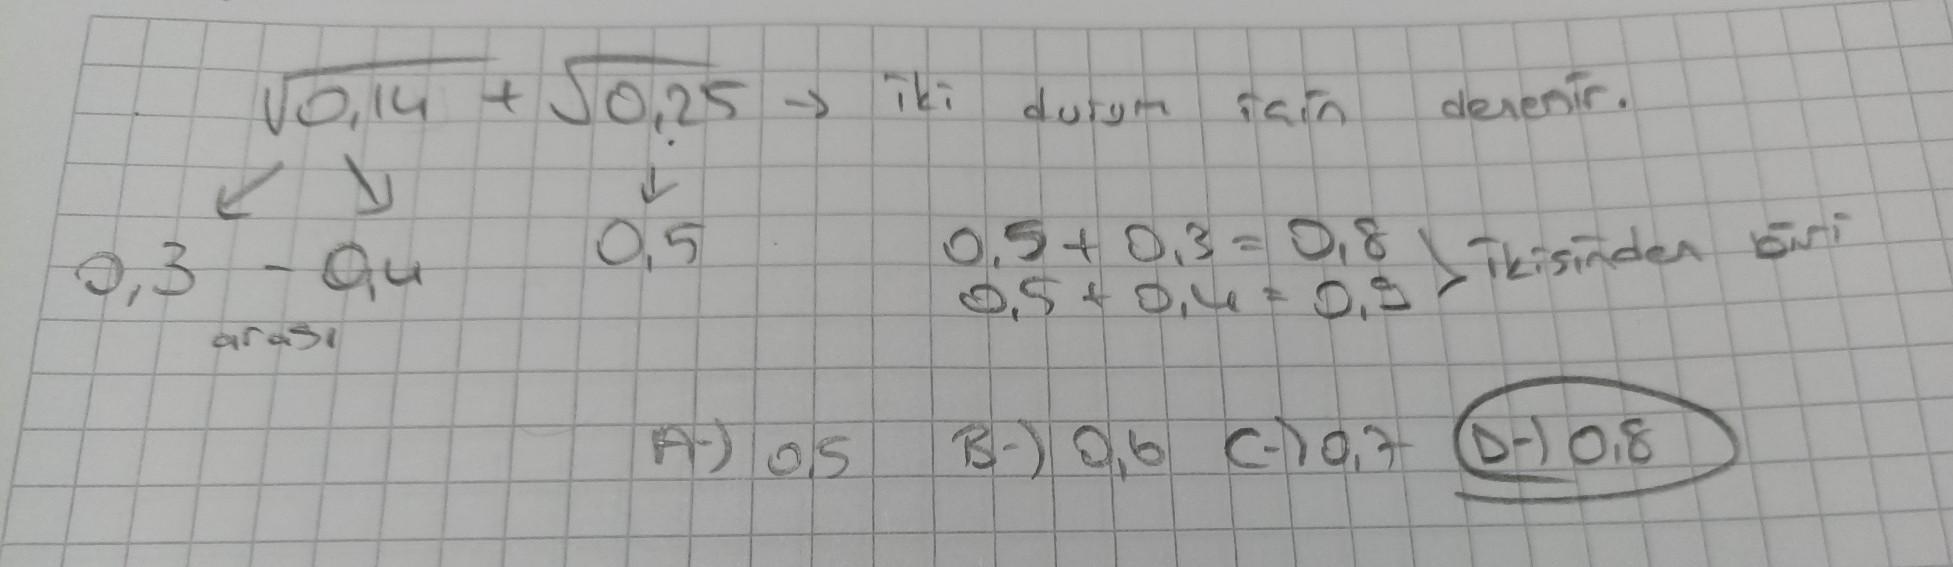 √0,14 + √0,25 → iki durum için denenir.
0,3 - 0,4 0,5
arası
0,5 + 0,3 = 0,8
0,5 + 0,4 = 0,9 > ikisinden biri
A-) 0,5 B-) 0,6 C-) 0,7 D-) 0,8